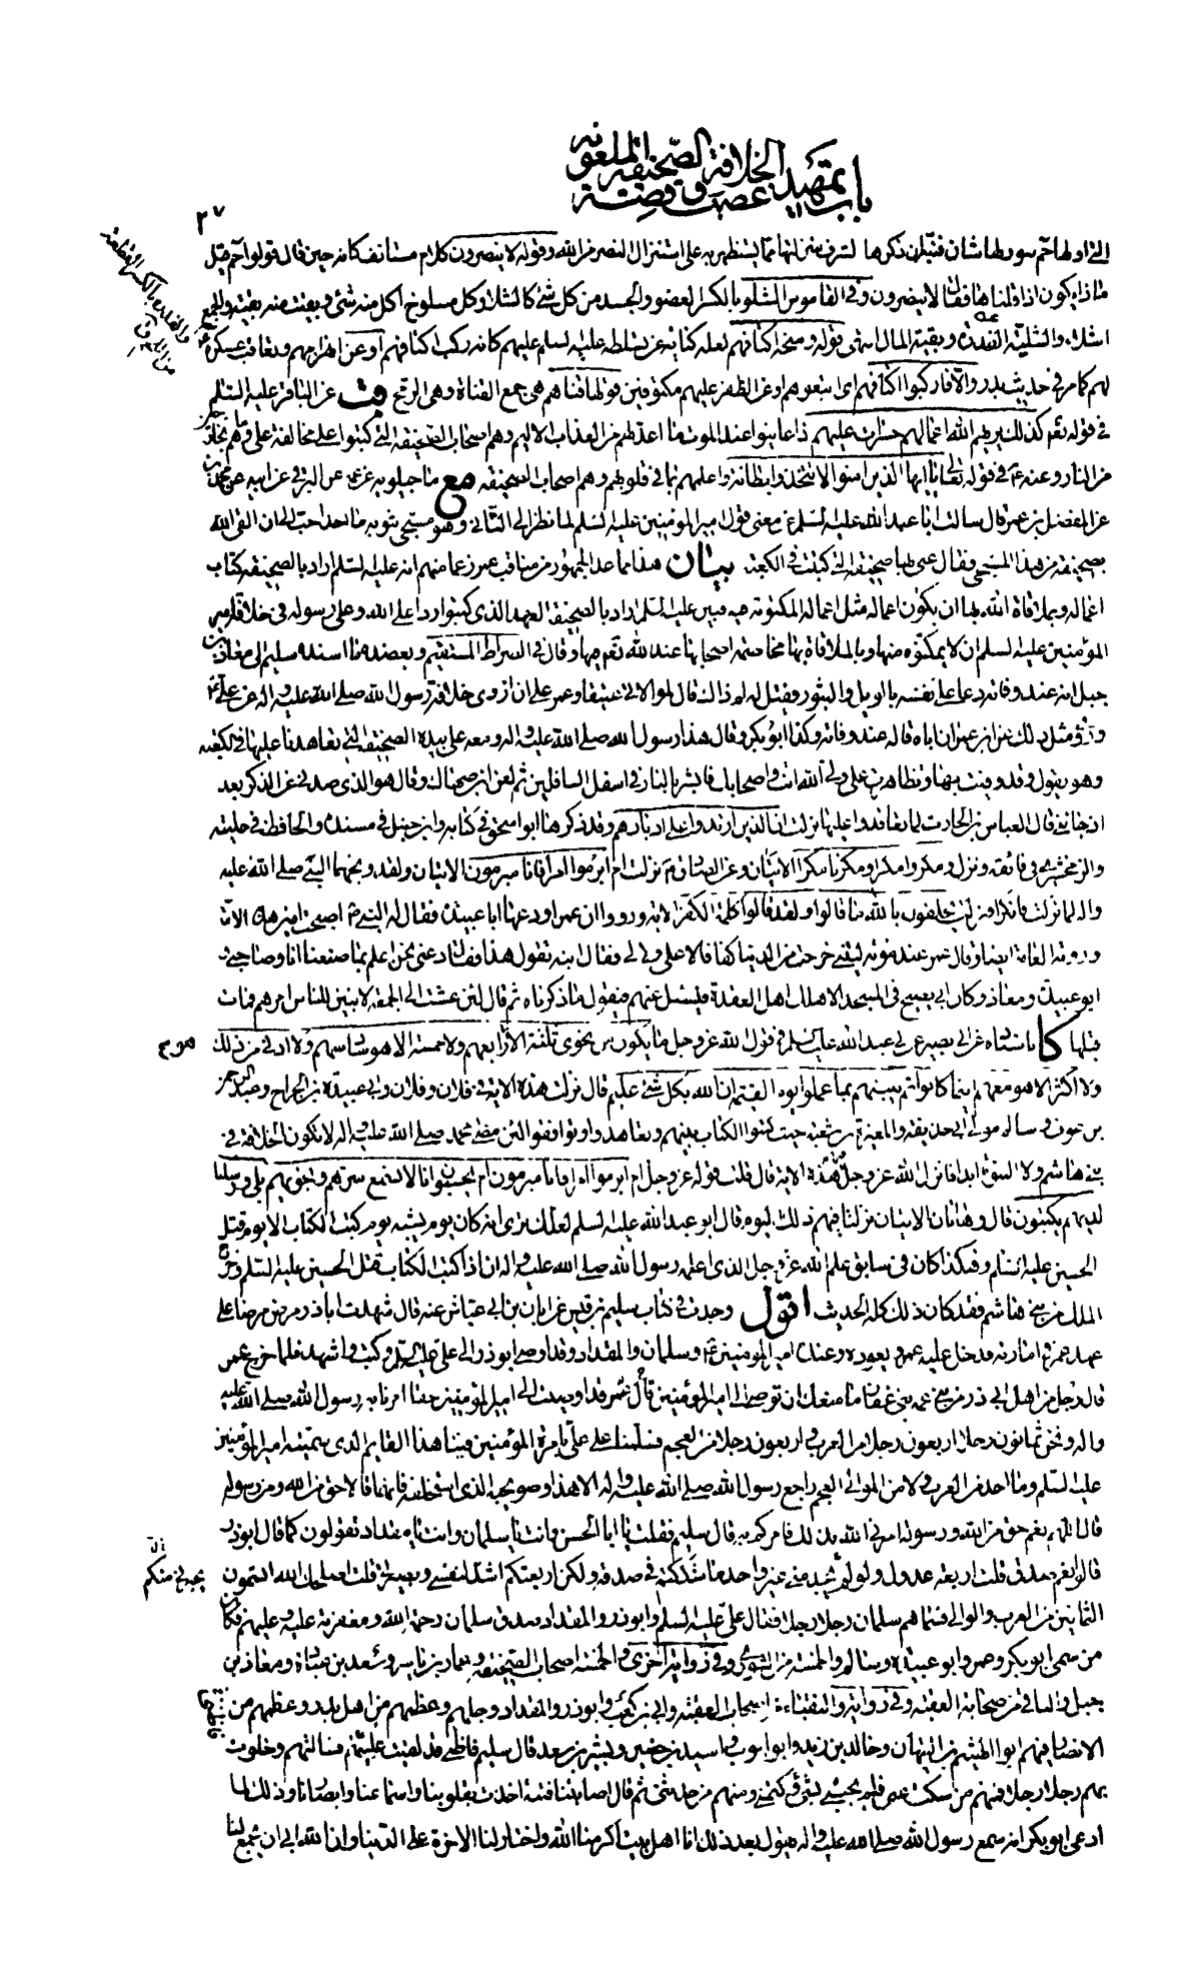 باب تمهيد الخلافة الصحيفة الملعونة
غصب وقصة
٢٧
التي اولها حم سور لها شان فنبه ان ذكرها لشرف منزلتها مما يستظهر به على استنزال النصر من الله وقوله لا ينصرون كلام مستانف كانه حين قال قولوا حم قيل
ماذا يكون اذا قلناها فقال لا ينصرون وفي القاموس الشلو بالكسر العضو والجسد من كل شئ كالشلا وكل مسلوخ اكل منه شئ وبقيت منه بقية والجمع
اشلاء والشلية الفدرة وبقية المال انتهى قوله ومنحنا اكتافهم لعله كناية عن تسلطه عليه السلم عليهم كانه ركب اكتافهم او عن انهزامهم وتعاقب عسكره
لهم كما مر في حديث بدر والا فاركبوا اكتافهم اي اتبعوهم او عن الظفر عليهم مكتوفين قولها قناهم هي جمع القناة وهي الرمح قب عن الباقر عليه السلم
في قوله تعم كذلك يريهم الله اعمالهم حسرات عليهم اذا عاينوا عند الموت ما اعد لهم من العذاب الاليم وهم اصحاب الصحيفة التي كتبوا على مخالفة على وما هم بخارجين
من النار وعنه ع في قوله تعالى يا ايها الذين امنوا لا تتخذوا بطانة واعلمهم بما في قلوبهم وهم اصحاب الصحيفة مع ماجيلويه عن عمه عن البرقي عن ابيه عن محمد بن
عن المفضل بن عمر قال سالت ابا عبد الله عليه السلم عن معنى قول امير المؤمنين عليه السلم لما نظر الى الثاني وهو مسجى بثوبه ما احد احب الي ان القى الله
بصحيفته من هذا المسجى فقال عنى بها صحيفته التي كتبت في الكعبة بيان هذا مما عد الجمهور من مناقب عمر زعما منهم انه عليه السلم اراد بالصحيفة كتاب
اعماله وبملاقاة الله بها ان يكون اعماله مثل اعماله المكتوبة فيه فبين عليه السلم انه اراد بالصحيفة العهد الذي كتبوا ردا على الله وعلى رسوله في خلافة امير
المؤمنين عليه السلم ان لا يمكنوه منها وبالملاقاة بها مخاصمة اصحابها عند الله تعم فيها وقال في الصراط المستقيم ويعضده ما اسنده سليم الى معاذ بن
جبل انه عند وفاته دعا على نفسه بالويل والثبور وقيل له لم ذاك قال لموالاتي عتيقا وعمر على ان ازوي خلافة رسول الله صلى الله عليه واله عن علي ع
وروى مثل ذلك عن ابن عمر ان اباه قاله عند وفاته وكذا ابو بكر وقال هذا رسول الله صلى الله عليه واله ومعه علي بيده الصحيفة التي تعاهدنا عليها في الكعبة
وهو يقول وقد وفيت بها وتظاهرت على ولي الله انت واصحابك فابشر بالنار في اسفل السافلين ثم لعن ابن صهاك وقال هو الذي صدني عن الذكر بعد
اذ جاءني قال العباس بن الحارث لما تعاقدوا عليها نزلت ان الذين ارتدوا على ادبارهم وقد ذكرها ابو اسحق في كتابه وابن حنبل في مسنده والحافظ في حليته
والزمخشري في فائقه ونزل ومكروا مكرا ومكرنا مكرا الايتان وعن الصادق ع نزلت ام ابرموا امرا فانا مبرمون الايتان ولقد وبخهما النبي صلى الله عليه
واله لما نزلت فانكرا فنزلت يحلفون بالله ما قالوا ولقد قالوا كلمة الكفر الاية ورووا ان عمر اودعها ابا عبيدة فقال له النبي ع اصبحت امين هذه الامة
وروته العامة ايضا وقال عمر عند موته ليتني خرجت من الدنيا كفافا لا علي ولا لي فقال ابنه تقول هذا فقال دعني نحن اعلم بما صنعنا انا وصاحبي و
ابو عبيدة ومعاذ وكان ابي يصيح في المسجد الا هلك اهل العقدة فيسئل عنهم فيقول ما ذكرناه ثم قال لئن عشت الى الجمعة لابينن للناس امرهم فمات
قبلها كا باسناده عن ابي بصير عن ابي عبد الله عليه السلم في قول الله عز وجل ما يكون من نجوى ثلثة الا هو رابعهم ولا خمسة الا هو سادسهم ولا ادنى من ذلك
ولا اكثر الا هو معهم اينما كانوا ثم ينبئهم بما عملوا يوم القيمة ان الله بكل شئ عليم قال نزلت هذه الاية في فلان وفلان وابي عبيدة بن الجراح وعبد الرحمن
بن عوف وسالم مولى ابي حذيفة والمغيرة بن شعبة حيث كتبوا الكتاب بينهم وتعاهدوا وتوافقوا لئن مضى محمد صلى الله عليه واله لا تكون الخلافة في
بني هاشم ولا النبوة ابدا فانزل الله عز وجل فيهم هذه الاية قال قلت قوله عز وجل ام ابرموا امرا فانا مبرمون ام يحسبون انا لا نسمع سرهم ونجويهم بلى ورسلنا
لديهم يكتبون قال وهاتان الايتان نزلتا فيهم ذلك اليوم قال ابو عبد الله عليه السلم لعلك ترى انه كان يوم يشبه يوم كتب الكتاب الا يوم قتل
الحسين عليه السلم وهكذا كان في سابق علم الله عز وجل الذي اعلمه رسول الله صلى الله عليه واله ان اذا كتب الكتاب قتل الحسين عليه السلم وخرج
الملك من بني هاشم فقد كان ذلك كله الحديث اقول وجدت في كتاب سليم بن قيس عن ابان بن ابي عياش عنه قال شهدت ابا ذر مرض مرضا على
عهد عمر في امارته فدخل عليه عمر يعوده وعنده امير المؤمنين ع وسلمان والمقداد وقد اوصى ابو ذر الى علي عليه السلم وكتب واشهد فلما خرج عمر
قال رجل من اهل ابي ذر من بني عمه بني غفار ما منعك ان توصي الى امير المؤمنين عمر قال قد اوصيت الى امير المؤمنين حقا امرنا به رسول الله صلى الله عليه
واله ونحن ثمانون رجلا اربعون رجلا من العرب واربعون رجلا من العجم فسلمنا على علي بامرة المؤمنين فينا هذا القائم الذي سميته امير المؤمنين
عليه السلم وما احد من العرب ولا من الموالي العجم راجع رسول الله صلى الله عليه واله الا هذا وصويحبه الذي استخلفه فانهما قالا احق من الله ومن رسوله
قال اللهم نعم حق من الله ورسوله امرني الله بذلك فامركم به قال سليم فقلت يا ابا الحسن وانت يا سلمان وانت يا مقداد تقولون كما قال ابو ذر
قالوا نعم صدق قلت اربعة عدول ولو لم يحدثني غير واحد ما شككت في صدقه ولكن اربعتكم اشد لنفسي وبصيرتي قلت اصلحك الله اتسمون
الثمانين من العرب والموالي فسماهم سلمان رجلا رجلا فقال علي عليه السلم وابو ذر والمقداد صدق سلمان رحمة الله ومغفرته عليه وعليهم فكان
من سمى ابو بكر وعمر وابو عبيدة وسالم والخمسة من الشورى وفي رواية اخرى والخمسة اصحاب الصحيفة وعمار بن ياسر وسعد بن عبادة ومعاذ بن
جبل والباقي من صحابة العقبة وفي رواية والنقباء من اصحاب العقبة وابي بن كعب وابو ذر والمقداد وجلهم وعظمهم من اهل بدر وعظمهم من
الانصار فيهم ابو الهيثم بن التيهان وخالد بن زيد ابو ايوب واسيد بن حضير وبشير بن سعد قال سليم فاظنني قد لقيت عليتهم فسالتهم وخلوت
بهم رجلا رجلا فمنهم من سكت عني فلم يجبني بشئ وكتمني ومنهم من حدثني ثم قال اصابتنا فتنة اخذت بقلوبنا واسماعنا وابصارنا وذلك لما
ادعى ابو بكر انه سمع رسول الله صلى الله عليه واله يقول بعد ذلك انا اهل بيت اكرمنا الله واختار لنا الاخرة على الدنيا وان الله ابى ان يجمع لنا